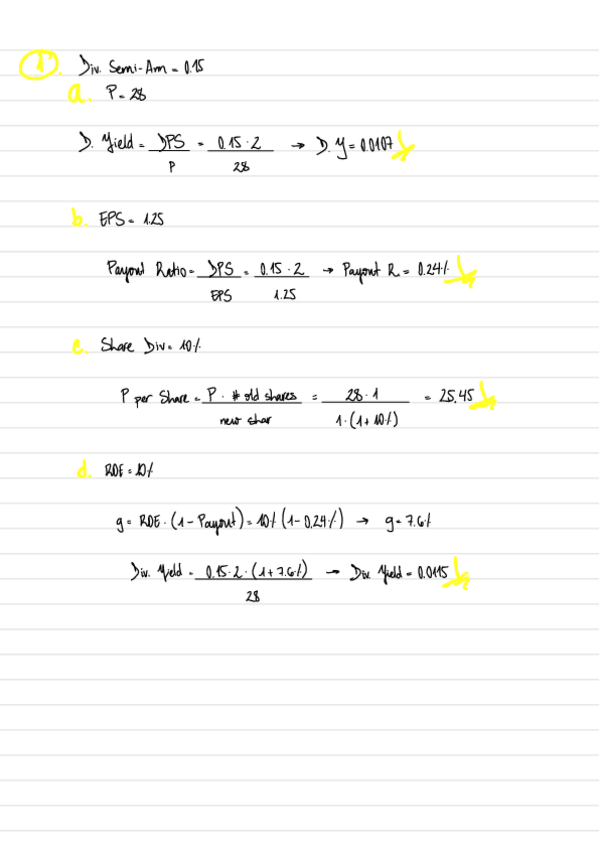 1. Div. Semi-Ann = 0.15
a. P = 28
D. Yield = DPS / P = 0.15 · 2 / 28 → D. Y = 0.0107
b. EPS = 1.25
Payout Ratio = DPS / EPS = 0.15 · 2 / 1.25 → Payout R = 0.24%
c. Share Div = 10%
P per Share = P · # old shares / new shar = 28 · 1 / 1 · (1 + 10%) = 25.45
d. ROE = 10%
g = ROE · (1 - Payout) = 10% (1 - 0.24%) → g = 7.6%
Div. Yield = 0.15 · 2 · (1 + 7.6%) / 28 → Div Yield = 0.0115